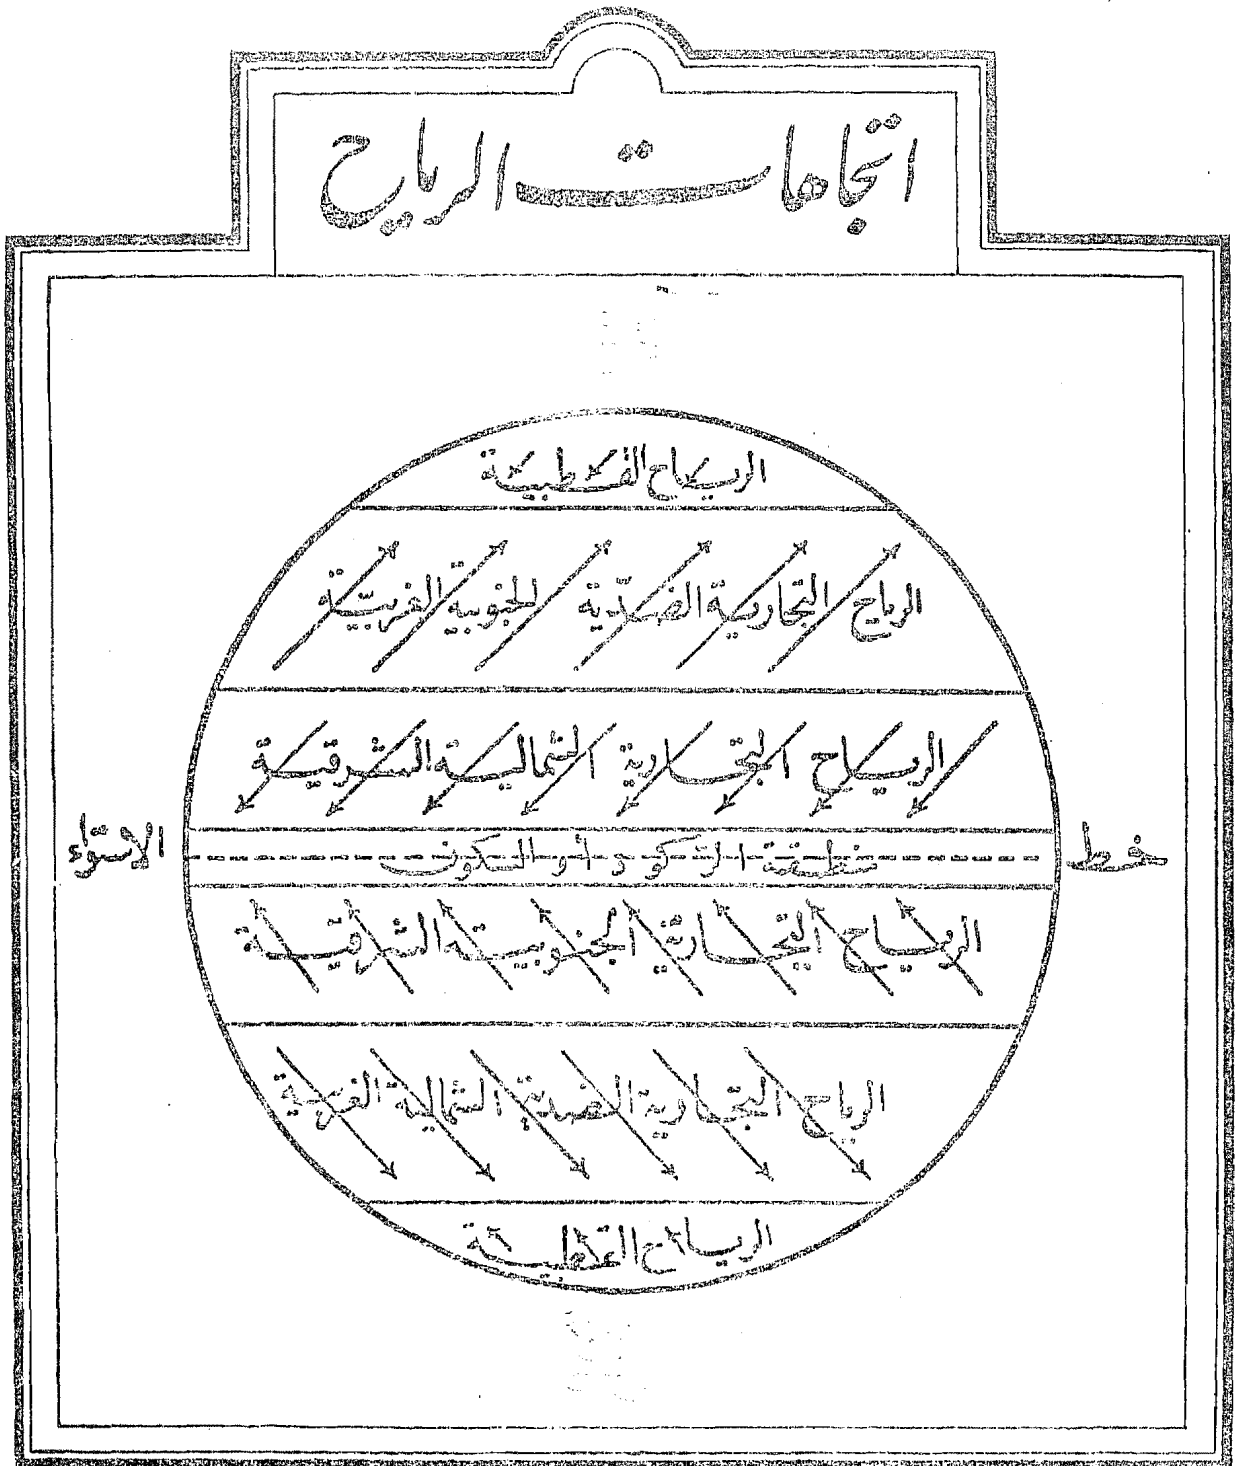 اتجاهات الرياح
الرياح القطبية
الرياح التجارية الضدّية الجنوبية الغربيّة
الرياح التجارية الشمالية الشرقية
خط منطقة الركود أو السكون الاستواء
الرياح التجارية الجنوبية الشرقية
الرياح التجارية الضدية الشمالية الغربية
الرياح القطبية